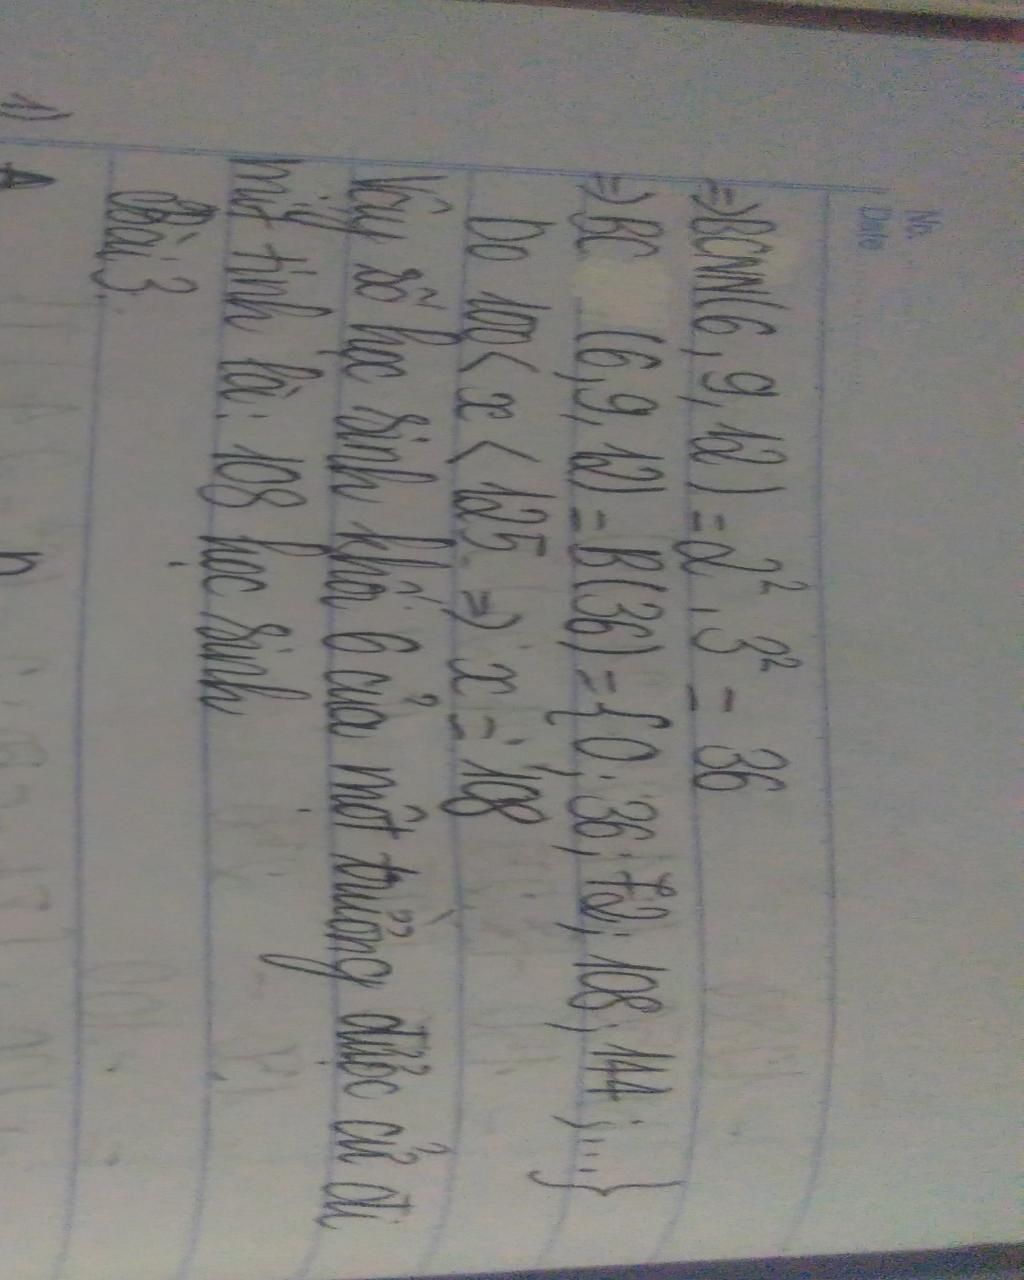 No.
Date
=> BCNN(6, 9, 12) = 2². 3² = 36
=> BC (6, 9, 12) = B(36) = {0; 36; 72; 108; 144; ...}
Do 100 < x < 125 => x = 108
Vậy số học sinh khối 6 của một trường được cử đi
mít tinh là: 108 học sinh
Bài 3
1) A